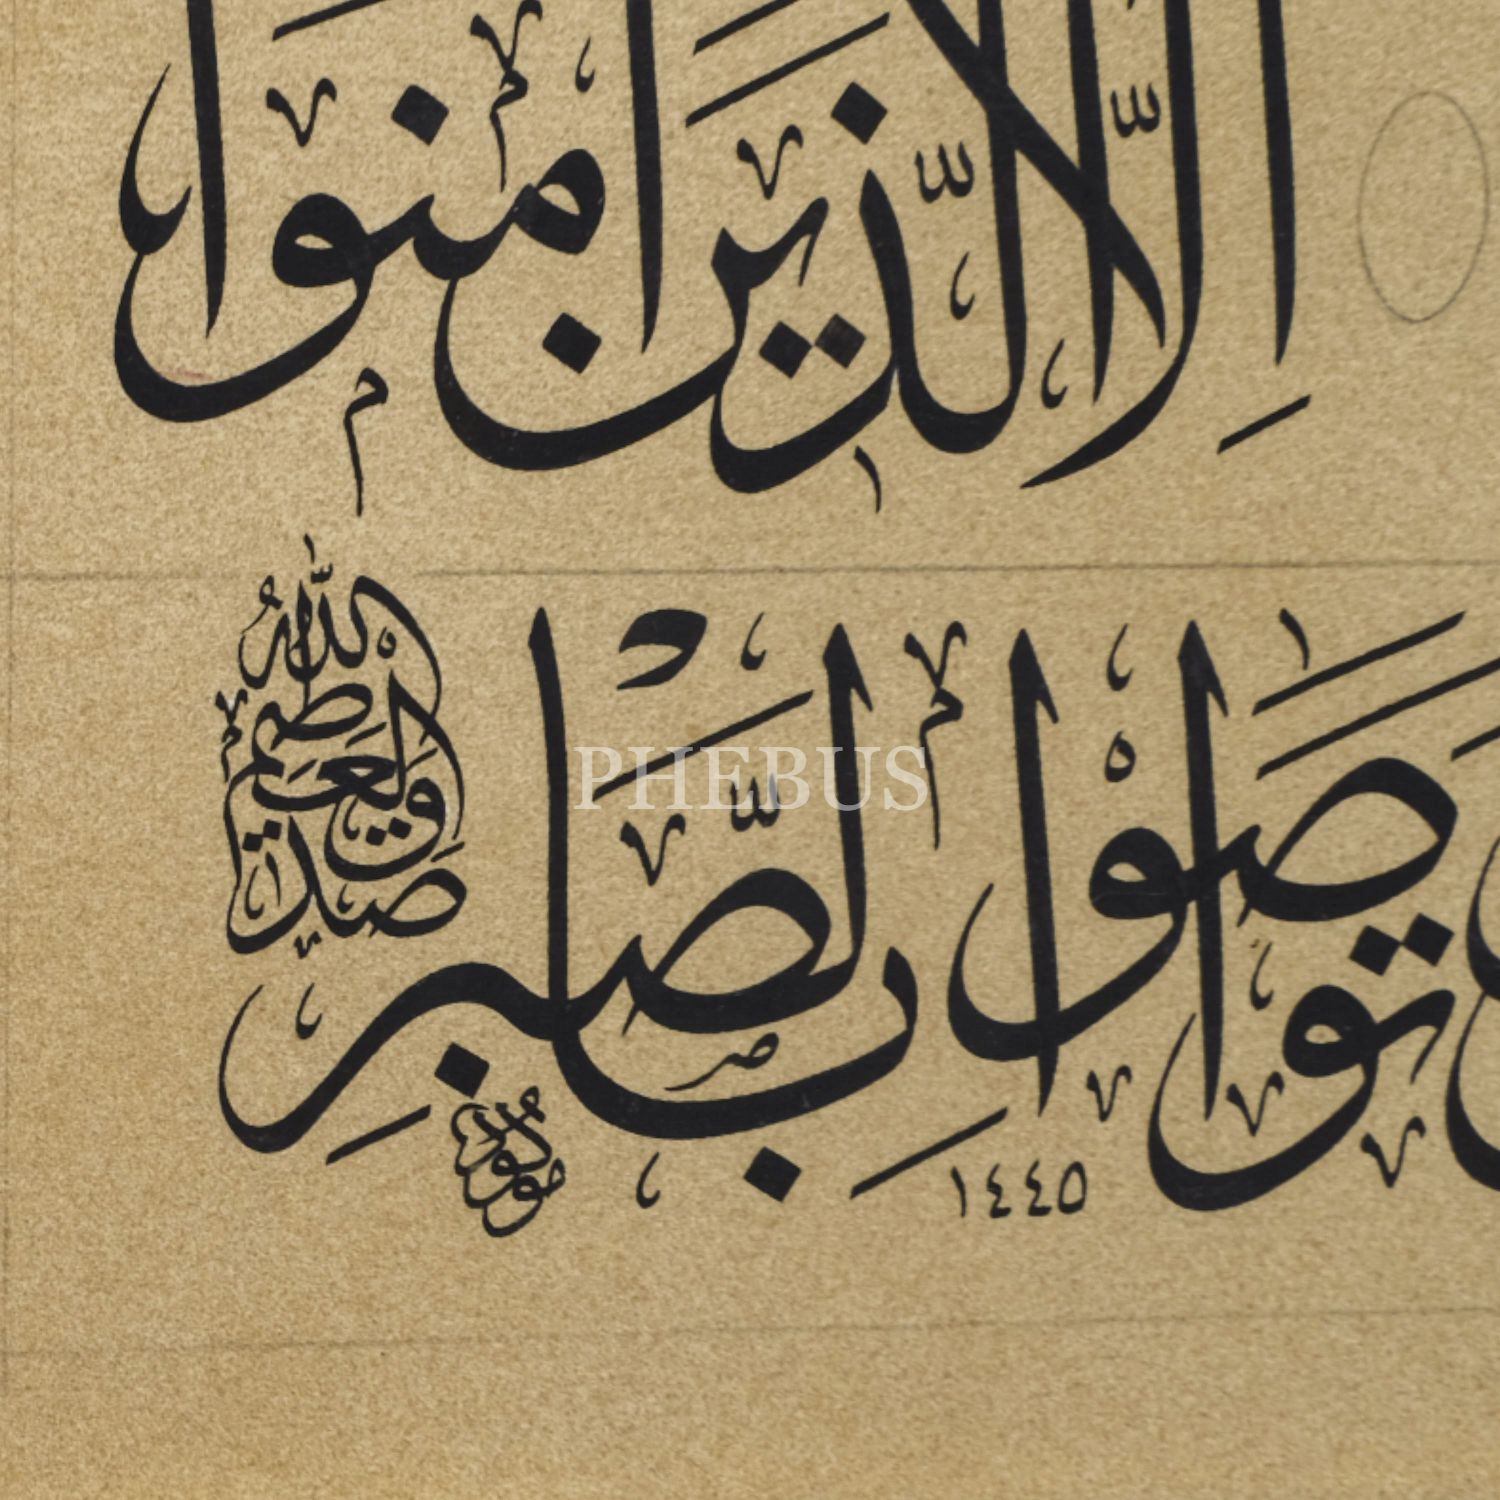 اِلَّا الَّذٖينَ اٰمَنُوا
تَوَاصَوْا بِالصَّبْرِ
صدق الله العظيم
١٤٤٥
PHEBUS